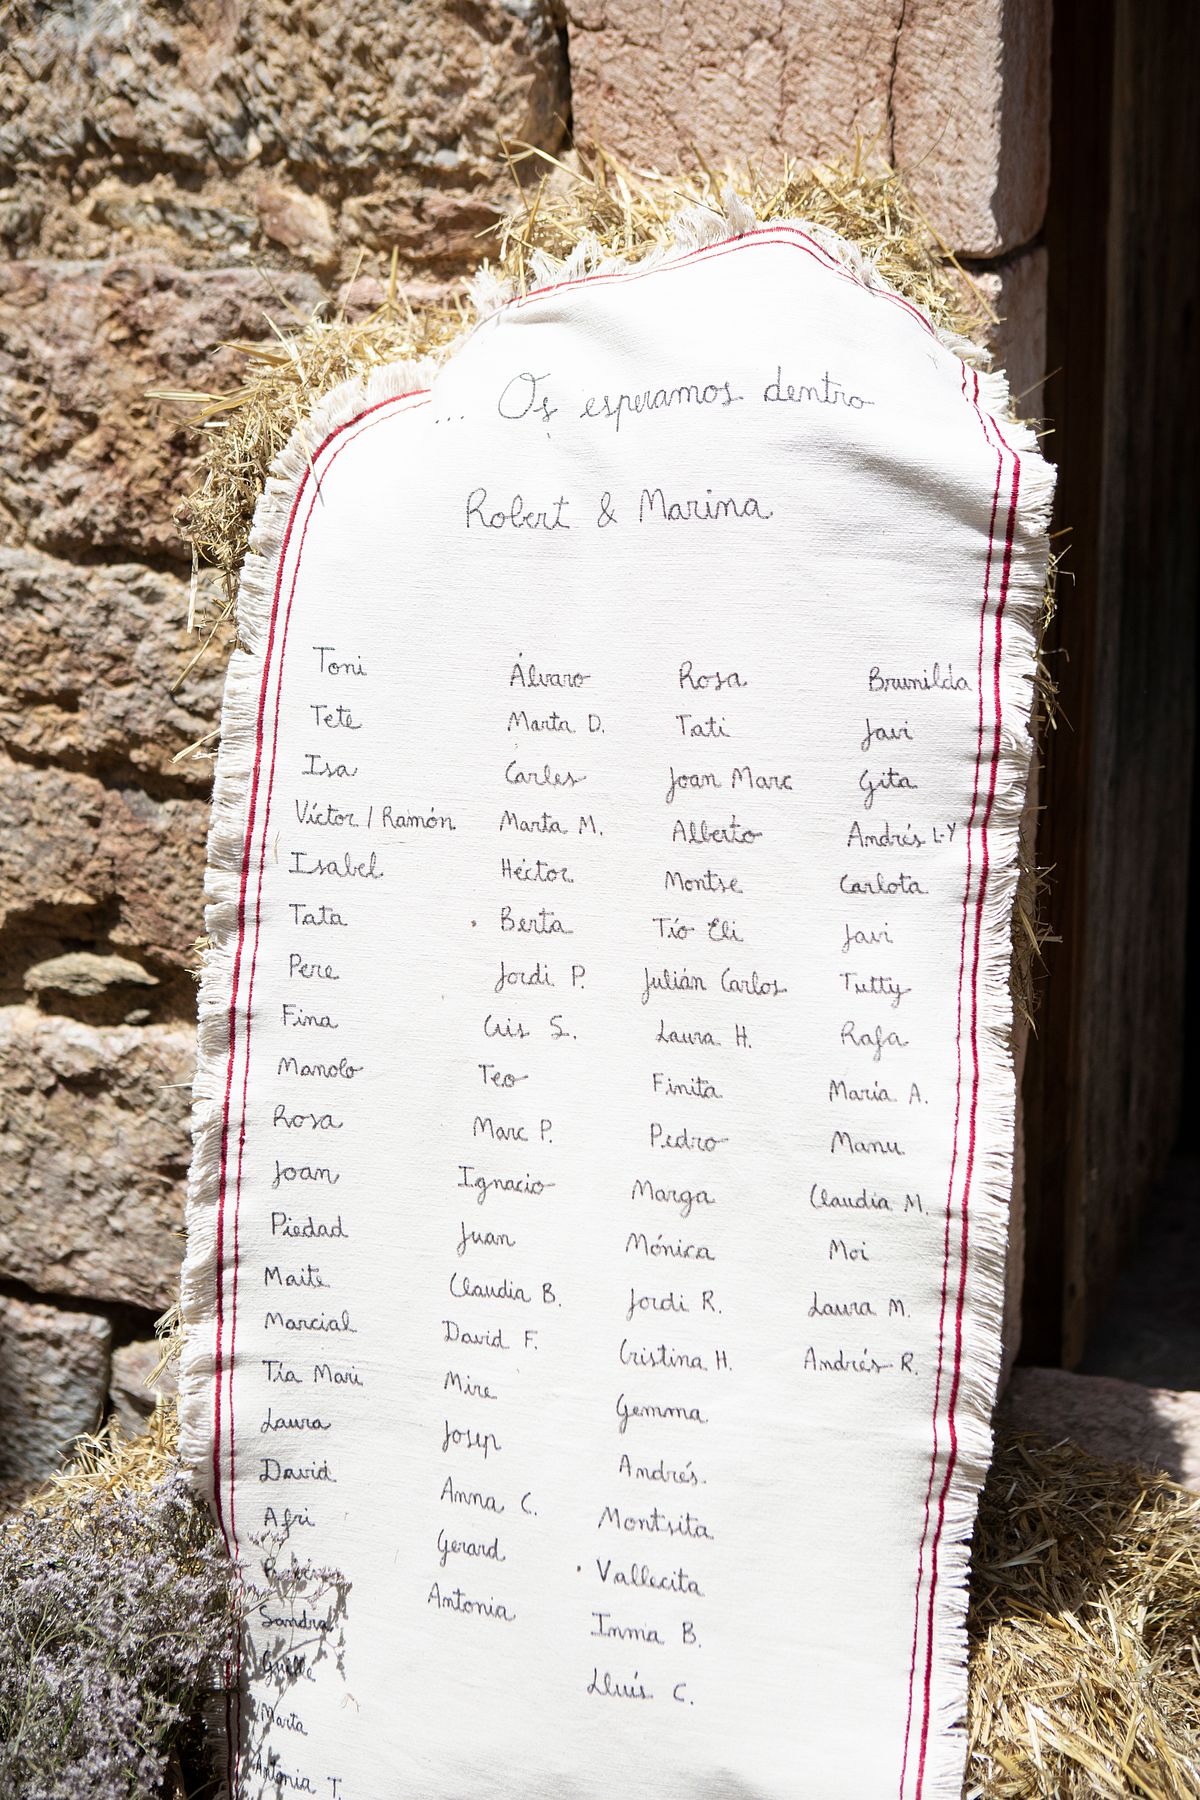 ... Os esperamos dentro
Robert & Marina
Toni
Tete
Isa
Víctor / Ramón
Isabel
Tata
Pere
Fina
Manolo
Rosa
Joan
Piedad
Maite
Marcial
Tía Mari
Laura
David
Afri
Sandra
Guille
Marta
Antonia T.
Álvaro
Marta D.
Carles
Marta M.
Héctor
Berta
Jordi P.
Cris S.
Teo
Marc P.
Ignacio
Juan
Claudia B.
David F.
Mire
Josep
Anna C.
Gerard
Antonia
Rosa
Tati
Joan Marc
Alberto
Montse
Tío Eli
Julián Carlos
Laura H.
Finita
Pedro
Marga
Mónica
Jordi R.
Cristina H.
Gemma
Andrés
Montsita
Vallecita
Inma B.
Lluís C.
Brunilda
Javi
Gita
Andrés L-Y
Carlota
Javi
Tutty
Rafa
María A.
Manu
Claudia M.
Moi
Laura M.
Andrés R.